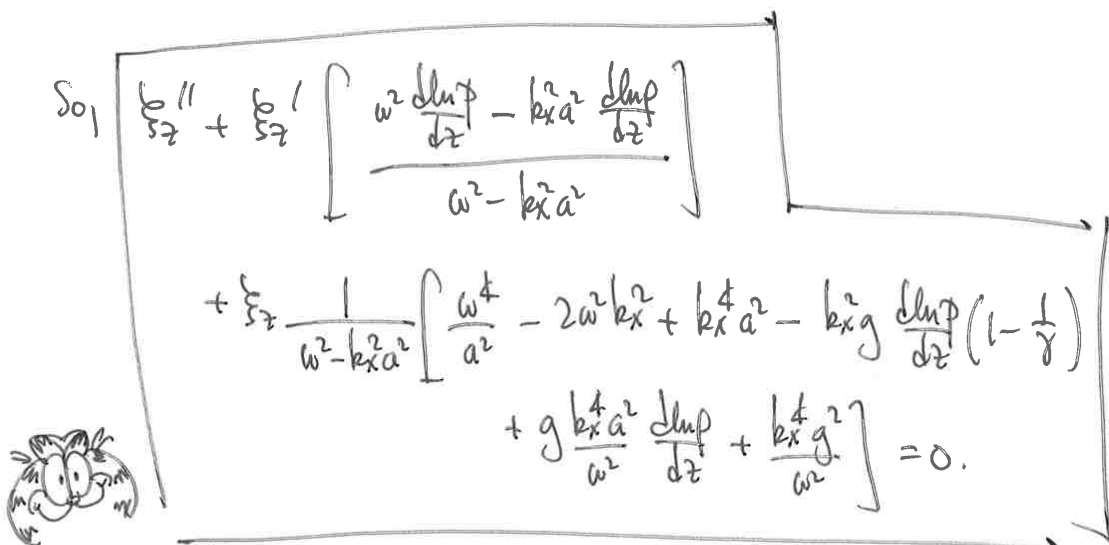 So, ξ_z'' + ξ_z' [ (ω² dlnp/dz − k_x² a² dlnρ/dz) / (ω² − k_x² a²) ]
+ ξ_z 1/(ω² − k_x² a²) [ ω⁴/a² − 2ω² k_x² + k_x⁴ a² − k_x² g dlnp/dz (1 − 1/γ)
+ g k_x⁴ a²/ω² dlnρ/dz + k_x⁴ g²/ω² ] = 0.